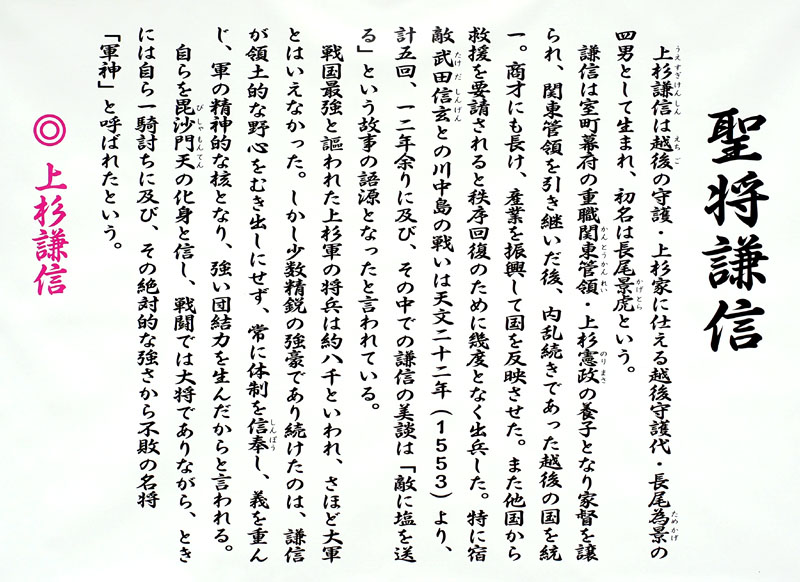 聖将謙信
上杉謙信は越後の守護・上杉家に仕える越後守護代・長尾為景の
四男として生まれ、初名は長尾景虎という。
謙信は室町幕府の重職関東管領・上杉憲政の養子となり家督を譲
られ、関東管領を引き継いだ後、内乱続きであった越後の国を統
一。商才にも長け、産業を振興して国を反映させた。また他国から
救援を要請されると秩序回復のために幾度となく出兵した。特に宿
敵 武田信玄との川中島の戦いは天文二十二年(1553)より、
計五回、一二年余りに及び、その中での謙信の美談は「敵に塩を送
る」という故事の語源となったと言われている。
戦国最強と謳われた上杉軍の将兵は約八千といわれ、さほど大軍
とはいえなかった。しかし少数精鋭の強豪であり続けたのは、謙信
が領土的な野心をむき出しにせず、常に体制を信奉し、義を重ん
じ、軍の精神的な核となり、強い団結力を生んだからと言われる。
自らを毘沙門天の化身と信し、戦闘では大将でありながら、とき
には自ら一騎討ちに及び、その絶対的な強さから不敗の名将
「軍神」と呼ばれたという。
◎ 上杉謙信